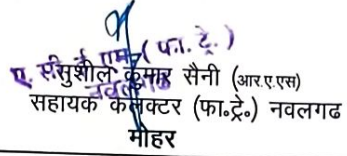 ए. सी. ई. एम. (फा. ट्रे.)
नवलगढ
सुशील कुमार सैनी (आर.ए.एस)
सहायक कलेक्टर (फा.ट्रे.) नवलगढ
मोहर